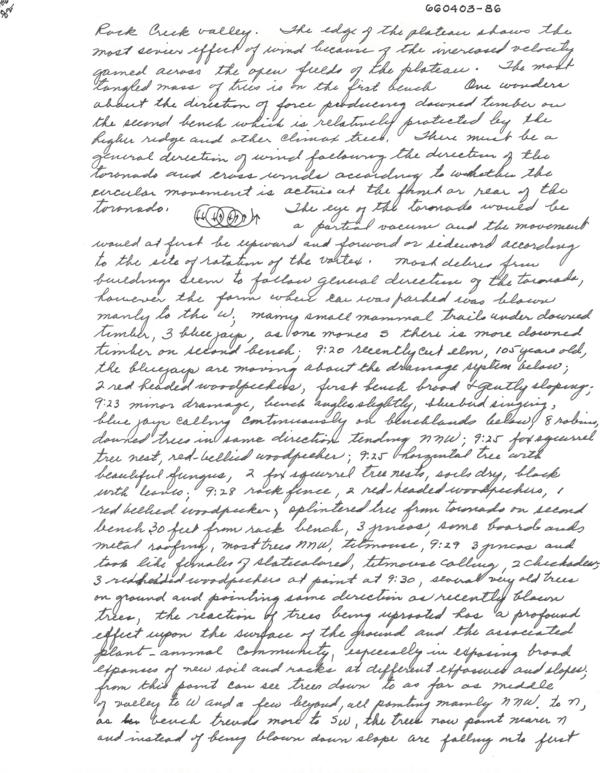 660403-86
Rock Creek valley. The edge of the plateau shows the
most sevier effect of wind because of the increased velocity
gained across the open fields of the plateau. The most
tangled mass of trees is on the first bench One wonders
about the direction of force producing downed timber on
the second bench which is relatively protected by the
higher ridge and other climax trees. There must be a
general direction of wind following the direction of the
toronado and cross winds according to whether the
circular movement is active at the front or rear of the
toronado. The eye of the toronado would be
a partial vacum and the movement
would at first be upward and forword or sideword according
to the site of rotation of the vortex. Most debris from
buildings seem to follow general direction of the toronado,
however the farm where car was parked was blown
manly to the W; many small mammal trails under downed
timber, 3 blue jays, as one moves S there is more downed
timber on second bench; 9:20 recently cut elm, 105 years old,
the bluejays are moving about the drainage system below;
2 red headed woodpeckers, first bench broad & gently sloping;
9:23 minor drainage, bench angles slightly, bluebird singing,
blue jays calling continuously on benchlands below, 8 robins,
downed trees in same direction tending NNW; 9:25 fox squirrel
tree nest, red-bellied woodpecker; 9:25 horizontal tree with
beautiful fungus, 2 fox squirrel tree nests, soils dry, black
with leaves; 9:28 rock fence, 2 red-headed woodpeckers, 1
red bellied woodpecker; splintered tree from toronado on second
bench 30 feet from rock bench, 3 juncos, some boards and
metal roofing, most trees NNW, titmouse, 9:29 3 juncos and
took like females of slatecolored, titmouse calling, 2 chickadees,
3 redheaded woodpeckers at point at 9:30, several very old trees
on ground and pointing same direction as recently blown
trees, the reaction of trees being uprooted has a profound
effect upon the surface of the ground and the associated
plant-animal community, especially in exposing broad
expanses of new soil and rocks at different exposures and slopes;
from this point can see trees down to as far as middle
of valley to W and a few beyond, all pointing mainly NNW. to N,
as bench trends more to SW, the trees now point nearer N
and instead of being blown down slope are falling onto first